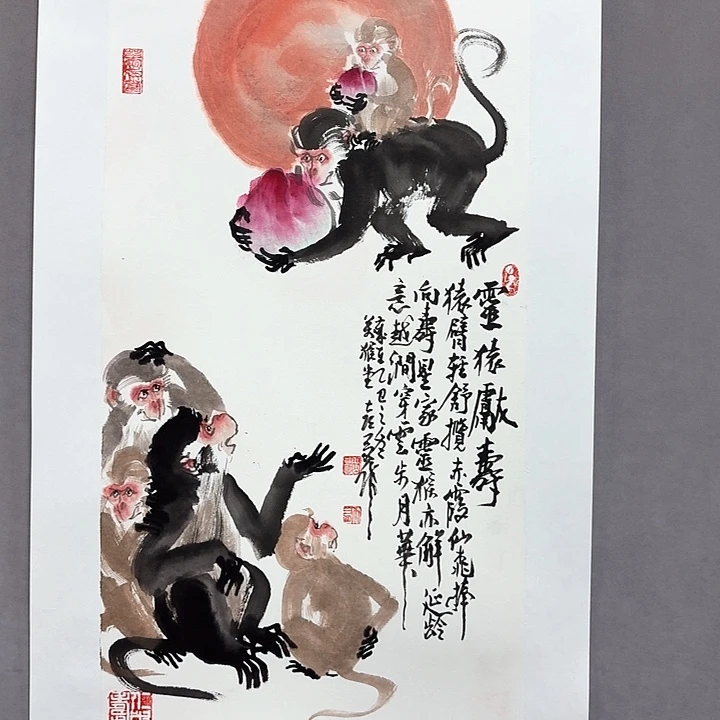 靈猿獻壽
猿臂轻舒攬赤霞仙桃捧
向壽星家靈猴亦解延龄
意越澗穿雲步月華